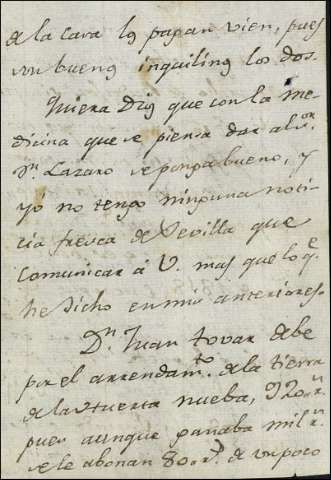 de la casa los pagan vien, pues
son buenos inquilinos los dos.
Quiera Dios que con la me-
dicina que se piensa dar al s.or
D.n Lazaro se ponga bueno, y
yó no tengo ninguna noti-
cia fresca de Sevilla que
comunicar á V. mas que lo q.e
he dicho en mis anteriores.
D.n Juan tovar debe
por el arrendam.to de la tierra
de la Huerta nueba, 920 r.s
pues aunque ganaba mil r.s
se le abonan 80 r.s de un poco